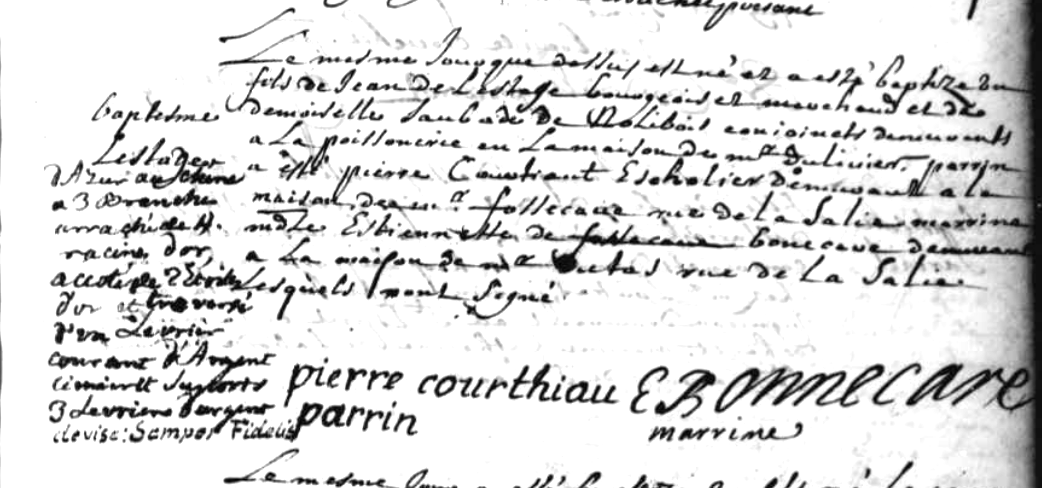 Le mesme Jour que dessus est né et a esté baptizé un
fils de Jean de Lestage bourgeois et marchand et de
demoiselle Saubade de Rolibois conjoincts demeurants
a La poissonerie en La maison de mr Dulivier. parrin
a esté pierre Courtiaut Escholier Demeurant a la
maison de mr fossecave rue de la Salie marrine
mdlle Estiennette de fossecave bonecave demeurant
a La maison de mr rue de La Salie.
Lesquels ont Signé
baptesme
Lestage
d'Azur au chene
a 3 Branches
arraché de
racine d'or,
acosté de 2 Etoiles
d'or et traversé
d'un Levrier
courant d'Argent
cimier et suports
3 Levriers d'argent
devise: Semper Fidelis
pierre courthiau
parrin
E Bonnecare
marrine
Le mesme Jour